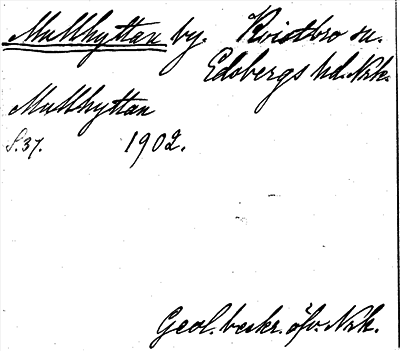 Mullhyttan by. Kvistbro sn.
Edsbergs hd. Nrk.
Mullhyttan
S. 37. 1902.
Geol. beskr. öfv. Nrk.